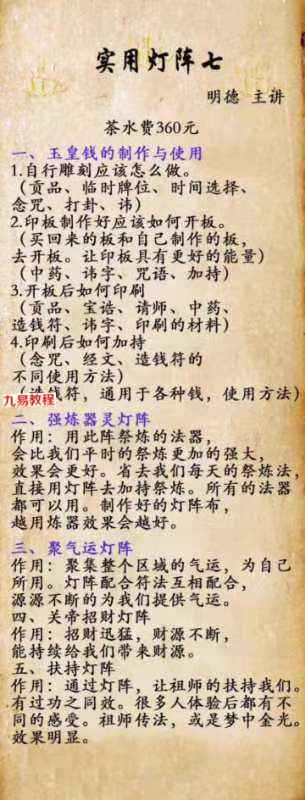 实用灯阵七
明德 主讲
茶水费360元
一、玉皇钱的制作与使用
1.自行雕刻应该怎么做。
（贡品、临时牌位、时间选择、
念咒、打卦、讳）
2.印板制作好应该如何开板。
（买回来的板和自己制作的板，
去开板。让印板具有更好的能量）
（中药、讳字、咒语、加持）
3.开板后如何印刷
（贡品、宝诰、请师、中药、
造钱符、讳字、印刷的材料）
4.印刷后如何加持
（念咒、经文、造钱符的
不同使用方法）
九易教程
造钱符，通用于各种钱，使用方法）
二、强炼器灵灯阵
作用：用此阵祭炼的法器，
会比我们平时的祭炼更加的强大，
效果会更好。省去我们每天的祭炼法，
直接用灯阵去加持祭炼。所有的法器
都可以用。制作好的灯阵布，
越用炼器效果会越好。
三、聚气运灯阵
作用：聚集整个区域的气运，为自己
所用。灯阵配合符法互相配合，
源源不断的为我们提供气运。
四、关帝招财灯阵
作用：招财迅猛，财源不断，
能持续给我们带来财源。
五、扶持灯阵
作用：通过灯阵，让祖师的扶持我们。
有过功之同效。很多人体验后都有不
同的感受。祖师传法，或是梦中金光。
效果明显。